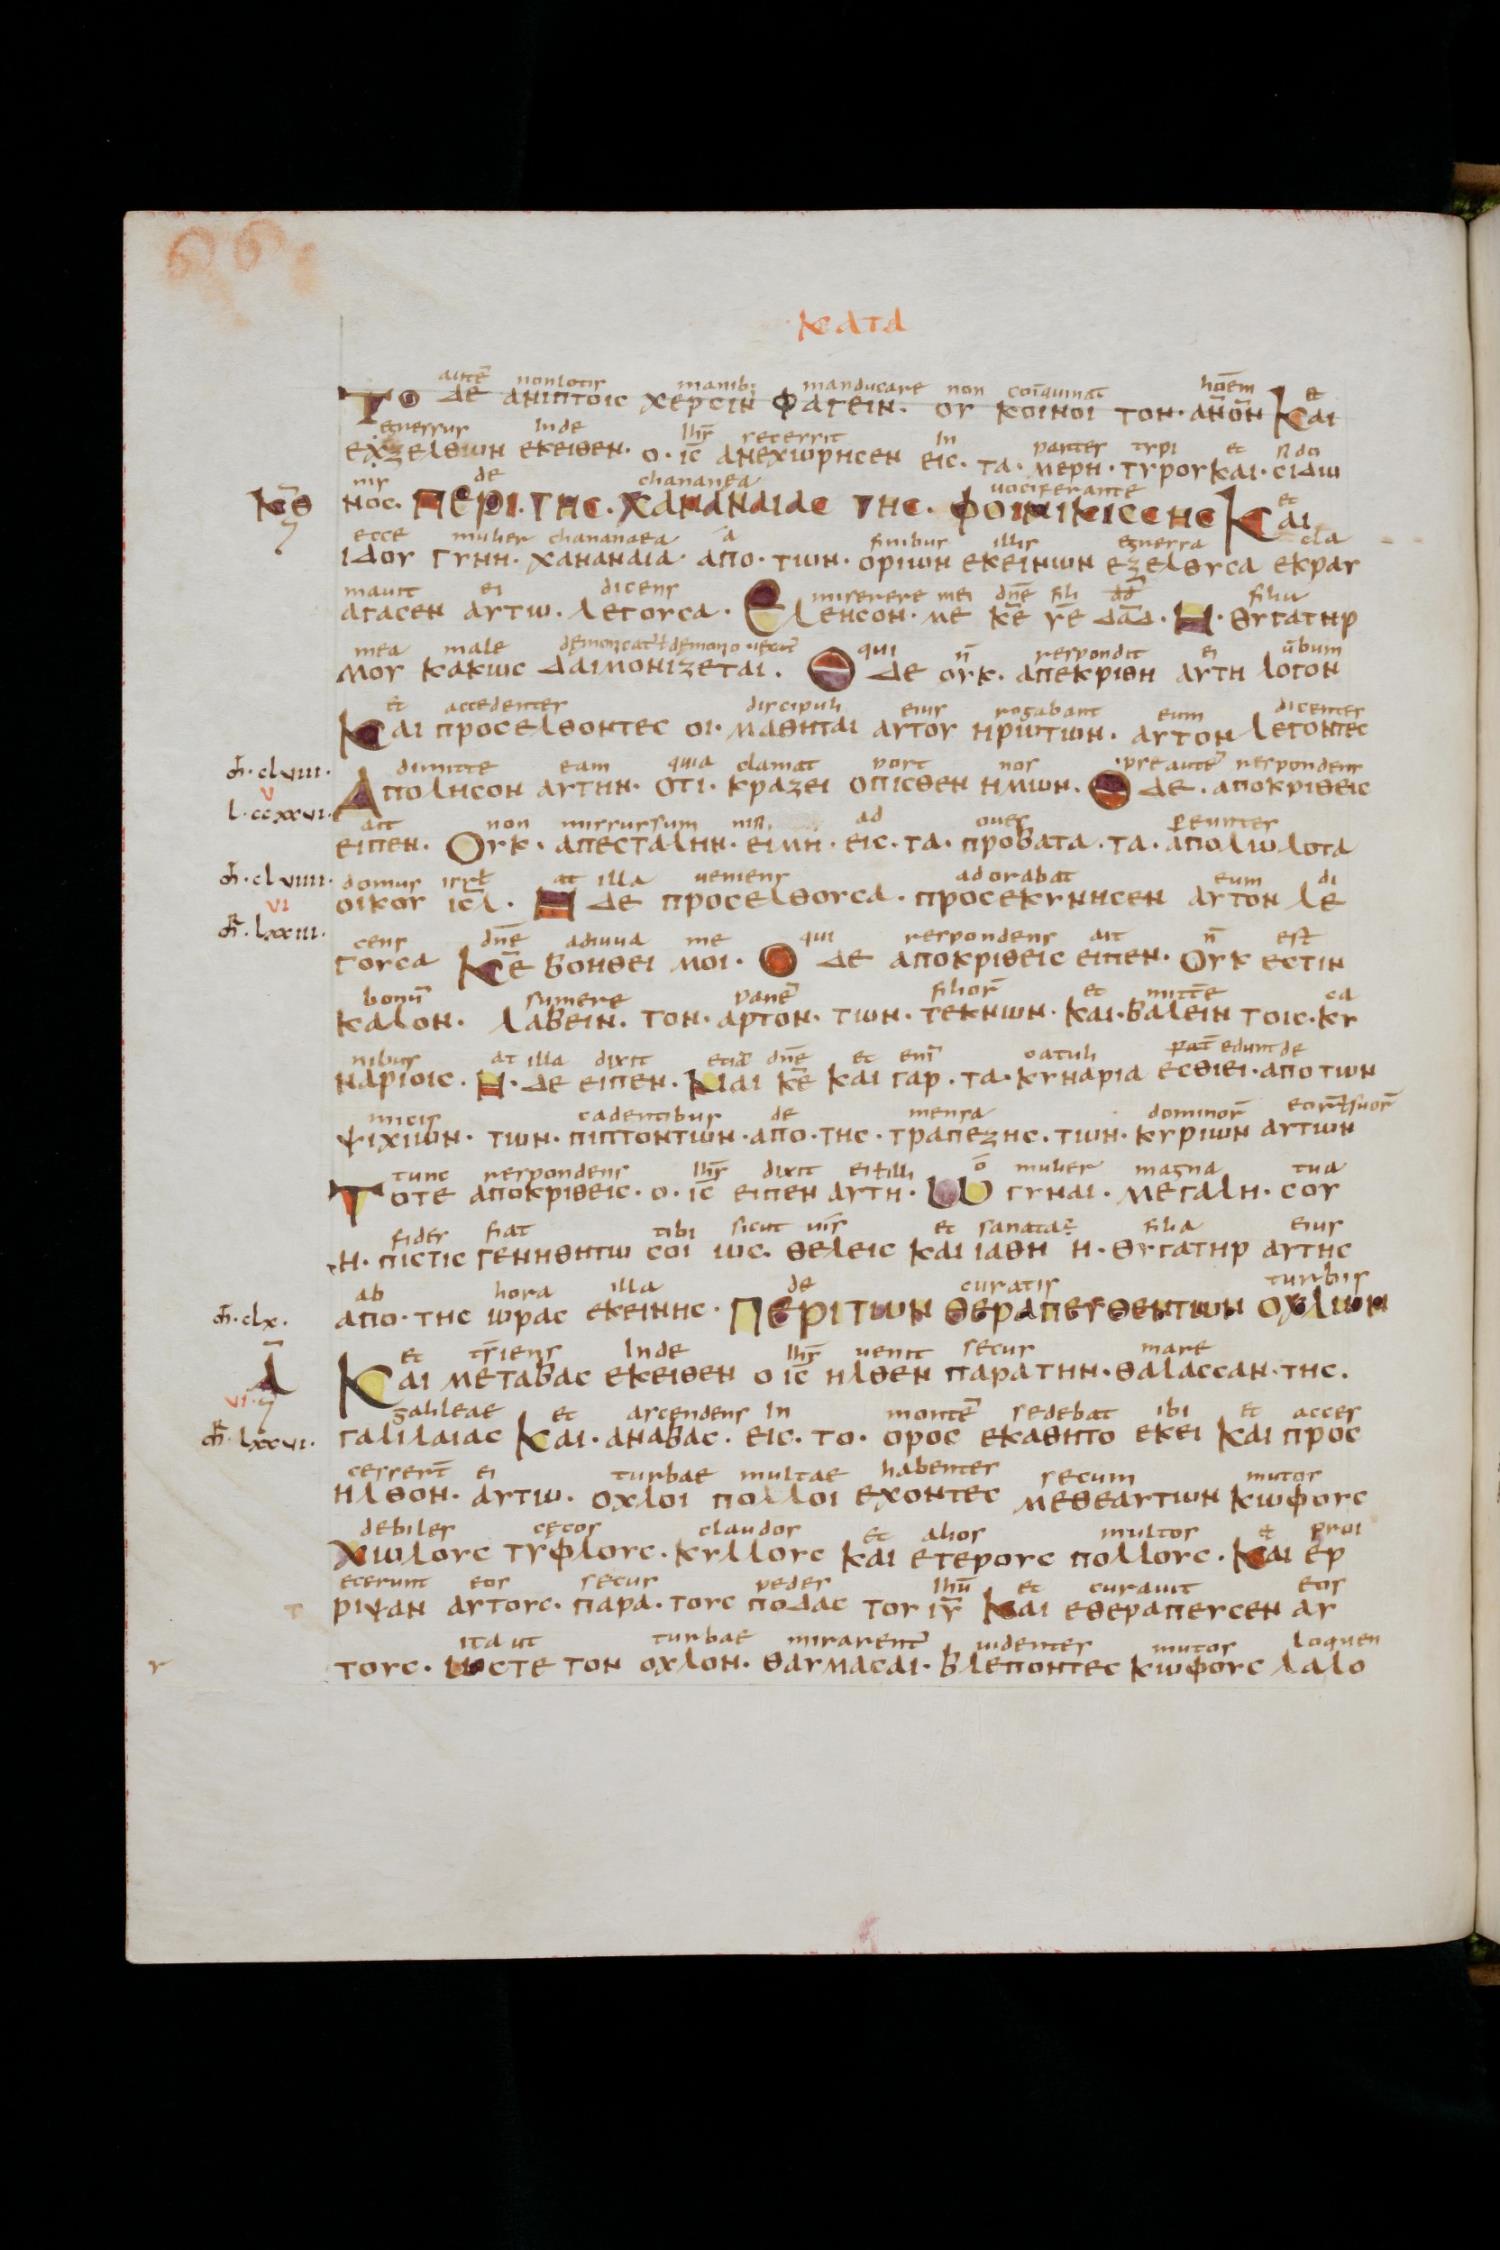 66
ΚΑΤΑ
autē nonlotis manib; manducare non coīquinat hoēm et
ΤΟ ΔΕ ΑΝΙΠΤΟΙC ΧΕΡCΙΝ ΦΑΓΕΙΝ· ΟΥ ΚΟΙΝΟΙ ΤΟΝ· ΑΝ̅ΟΝ̅ ΚΑΙ
egressus Inde Ihs̄ secessit In partes tyri et sido
ΕΧΞΕΛΘΩΝ ΕΚΕΙΘΕΝ· Ο· ΙC̅ ΑΝΕΧΩΡΗCΕΝ ΕΙC· ΤΑ· ΜΕΡΗ· ΤΥΡΟΥ ΚΑΙ· CΙΔΩ
nis de chananea uociferante et
ΚΘ̅ ΝΟC· ΠΕΡΙ· ΤΗC· ΧΑΝΑΝΑΙΔΕ ΤΗC· ΦΟΙΝΙΚΙCCΗC ΚΑΙ
ecce mulier chananaea a finibus illis egressa cla
ΙΔΟΥ ΓΥΝΗ· ΧΑΝΑΝΑΙΑ· ΑΠΟ· ΤΩΝ· ΟΡΙΩΝ ΕΚΕΙΝΩΝ ΕΞΕΛΘΥCΑ ΕΚΡΑΥ
mauit ei dicens miserere mei dn̄e fili dd̄ filia
ΑΓΑCΕΝ ΑΥΤΩ· ΛΕΓΟΥCΑ· ΕΛΕΗCΟΝ· ΜΕ ΚΕ̅ ΥΕ̅ ΔΑΔ̅· Η· ΘΥΓΑΤΗΡ
mea male qui n̄ respondit ei ūbum
ΜΟΥ ΚΑΚΩC ΔΑΙΜΟΝΙΖΕΤΑΙ· Ο ΔΕ ΟΥΚ· ΑΠΕΚΡΙΘΗ ΑΥΤΗ ΛΟΓΟΝ
et accedentes discipuli eius rogabant eum dicentes
ΚΑΙ ΠΡΟCΕΛΘΟΝΤΕC ΟΙ· ΜΑΘΗΤΑΙ ΑΥΤΟΥ ΗΡΩΤΩΝ· ΑΥΤΟΝ ΛΕΓΟΝΤΕC
m̄· clviii· dimitte eam quia clamat post nos ipse autē respondens
V ΑΠΟΛΗCΟΝ ΑΥΤΗΝ· ΟΤΙ· ΚΡΑΖΕΙ ΟΠΙCΘΕΝ ΗΜΩΝ· Ο ΔΕ· ΑΠΟΚΡΙΘΕΙC
l· ccxxvi· ait non missus sum nisi ad oues
ΕΙΠΕΝ· ΟΥΚ· ΑΠΕCΤΑΛΗΝ· ΕΙΜΗ· ΕΙC· ΤΑ· ΠΡΟΒΑΤΑ· ΤΑ· ΑΠΟΛΩΛΟΤΑ
m̄· clviiii· domus isrł at illa ueniens adorabat eum di
VI ΟΙΚΟΥ ΙCΛ̅· Η ΔΕ ΠΡΟCΕΛΘΟΥCΑ· ΠΡΟCΕΚΥΝΗCΕΝ ΑΥΤΟΝ ΛΕ
mr̄· lxxiii· cens dn̄e adiuua me qui respondens ait n̄ est
ΓΟΥCΑ ΚΕ̅ ΒΟΗΘΕΙ ΜΟΙ· Ο ΔΕ ΑΠΟΚΡΙΘΕΙC ΕΙΠΕΝ· ΟΥΚ ΕCΤΙΝ
bonū sumere panē filior̄ et mitte ca
ΚΑΛΟΝ· ΛΑΒΕΙΝ· ΤΟΝ· ΑΡΤΟΝ· ΤΩΝ· ΤΕΚΝΩΝ· ΚΑΙ· ΒΑΛΕΙΝ ΤΟΙC· ΚΥ
nibus at illa dixit etiā dn̄e et eni catuli edunt de
ΝΑΡΙΟΙC· Η· ΔΕ ΕΙΠΕΝ· ΝΑΙ ΚΕ̅ ΚΑΙ ΓΑΡ· ΤΑ· ΚΥΝΑΡΙΑ ΕCΘΙΕΙ· ΑΠΟ ΤΩΝ
micis cadentibus de mensa dominor̄ eor̄ ł suor̄
ΨΙΧΙΩΝ· ΤΩΝ· ΠΙΠΤΟΝΤΩΝ· ΑΠΟ· ΤΗC· ΤΡΑΠΕΖΗC· ΤΩΝ· ΚΥΡΙΩΝ ΑΥΤΩΝ
tunc respondens Ihs̄ dixit ei ł illi ō mulier magna tua
ΤΟΤΕ ΑΠΟΚΡΙΘΕΙC· Ο· ΙC̅ ΕΙΠΕΝ ΑΥΤΗ· Ω ΓΥΝΑΙ· ΜΕΓΑΛΗ· CΟΥ
fides fiat tibi sicut uis et sanata filia eius
Η· ΠΙCΤΙC ΓΕΝΗΘΗΤΩ CΟΙ ΩC· ΘΕΛΕΙC ΚΑΙ ΙΑΘΗ Η· ΘΥΓΑΤΗΡ ΑΥΤΗC
ab hora illa de curatis turbis
m̄· clx· ΑΠΟ· ΤΗC ΩΡΑC ΕΚΕΙΝΗC· ΠΕΡΙ ΤΩΝ ΘΕΡΑΠΕΥΘΕΝΤΩΝ ΟΧΛΩΝ
et trāsiens Inde Ihs̄ uenit secus mare
Λ̅ ΚΑΙ ΜΕΤΑΒΑC ΕΚΕΙΘΕΝ Ο ΙC̅ ΗΛΘΕΝ ΠΑΡΑ ΤΗΝ· ΘΑΛΑCCΑΝ· ΤΗC·
VI galileae et ascendens In montē sedebat ibi et acces
mr̄· lxxvi· ΓΑΛΙΛΑΙΑC ΚΑΙ· ΑΝΑΒΑC· ΕΙC· ΤΟ· ΟΡΟC ΕΚΑΘΗΤΟ ΕΚΕΙ ΚΑΙ ΠΡΟC
cesserт̄ ei turbae multae habentes secum mutos
ΗΛΘΟΝ· ΑΥΤΩ· ΟΧΛΟΙ ΠΟΛΛΟΙ ΕΧΟΝΤΕC ΜΕΘΕΑΥΤΩΝ ΚΩΦΟΥC
debiles cęcos claudos et alios multos et proi
ΧΩΛΟΥC ΤΥΦΛΟΥC· ΚΥΛΛΟΥC ΚΑΙ ΕΤΕΡΟΥC ΠΟΛΛΟΥC· ΚΑΙ ΕΡ
ecerunt eos secus pedes Ihū et curauit eos
ΡΙΨΑΝ ΑΥΤΟΥC· ΠΑΡΑ· ΤΟΥC ΠΟΔΑC ΤΟΥ ΙΥ̅ ΚΑΙ ΕΘΕΡΑΠΕΥCΕΝ ΑΥ
ita ut turbae mirarent̄ uidentes mutos loquen
ΤΟΥC· ΩCΤΕ ΤΟΝ ΟΧΛΟΝ· ΘΑΥΜΑCΑΙ· ΒΛΕΠΟΝΤΕC ΚΩΦΟΥC ΛΑΛΟ